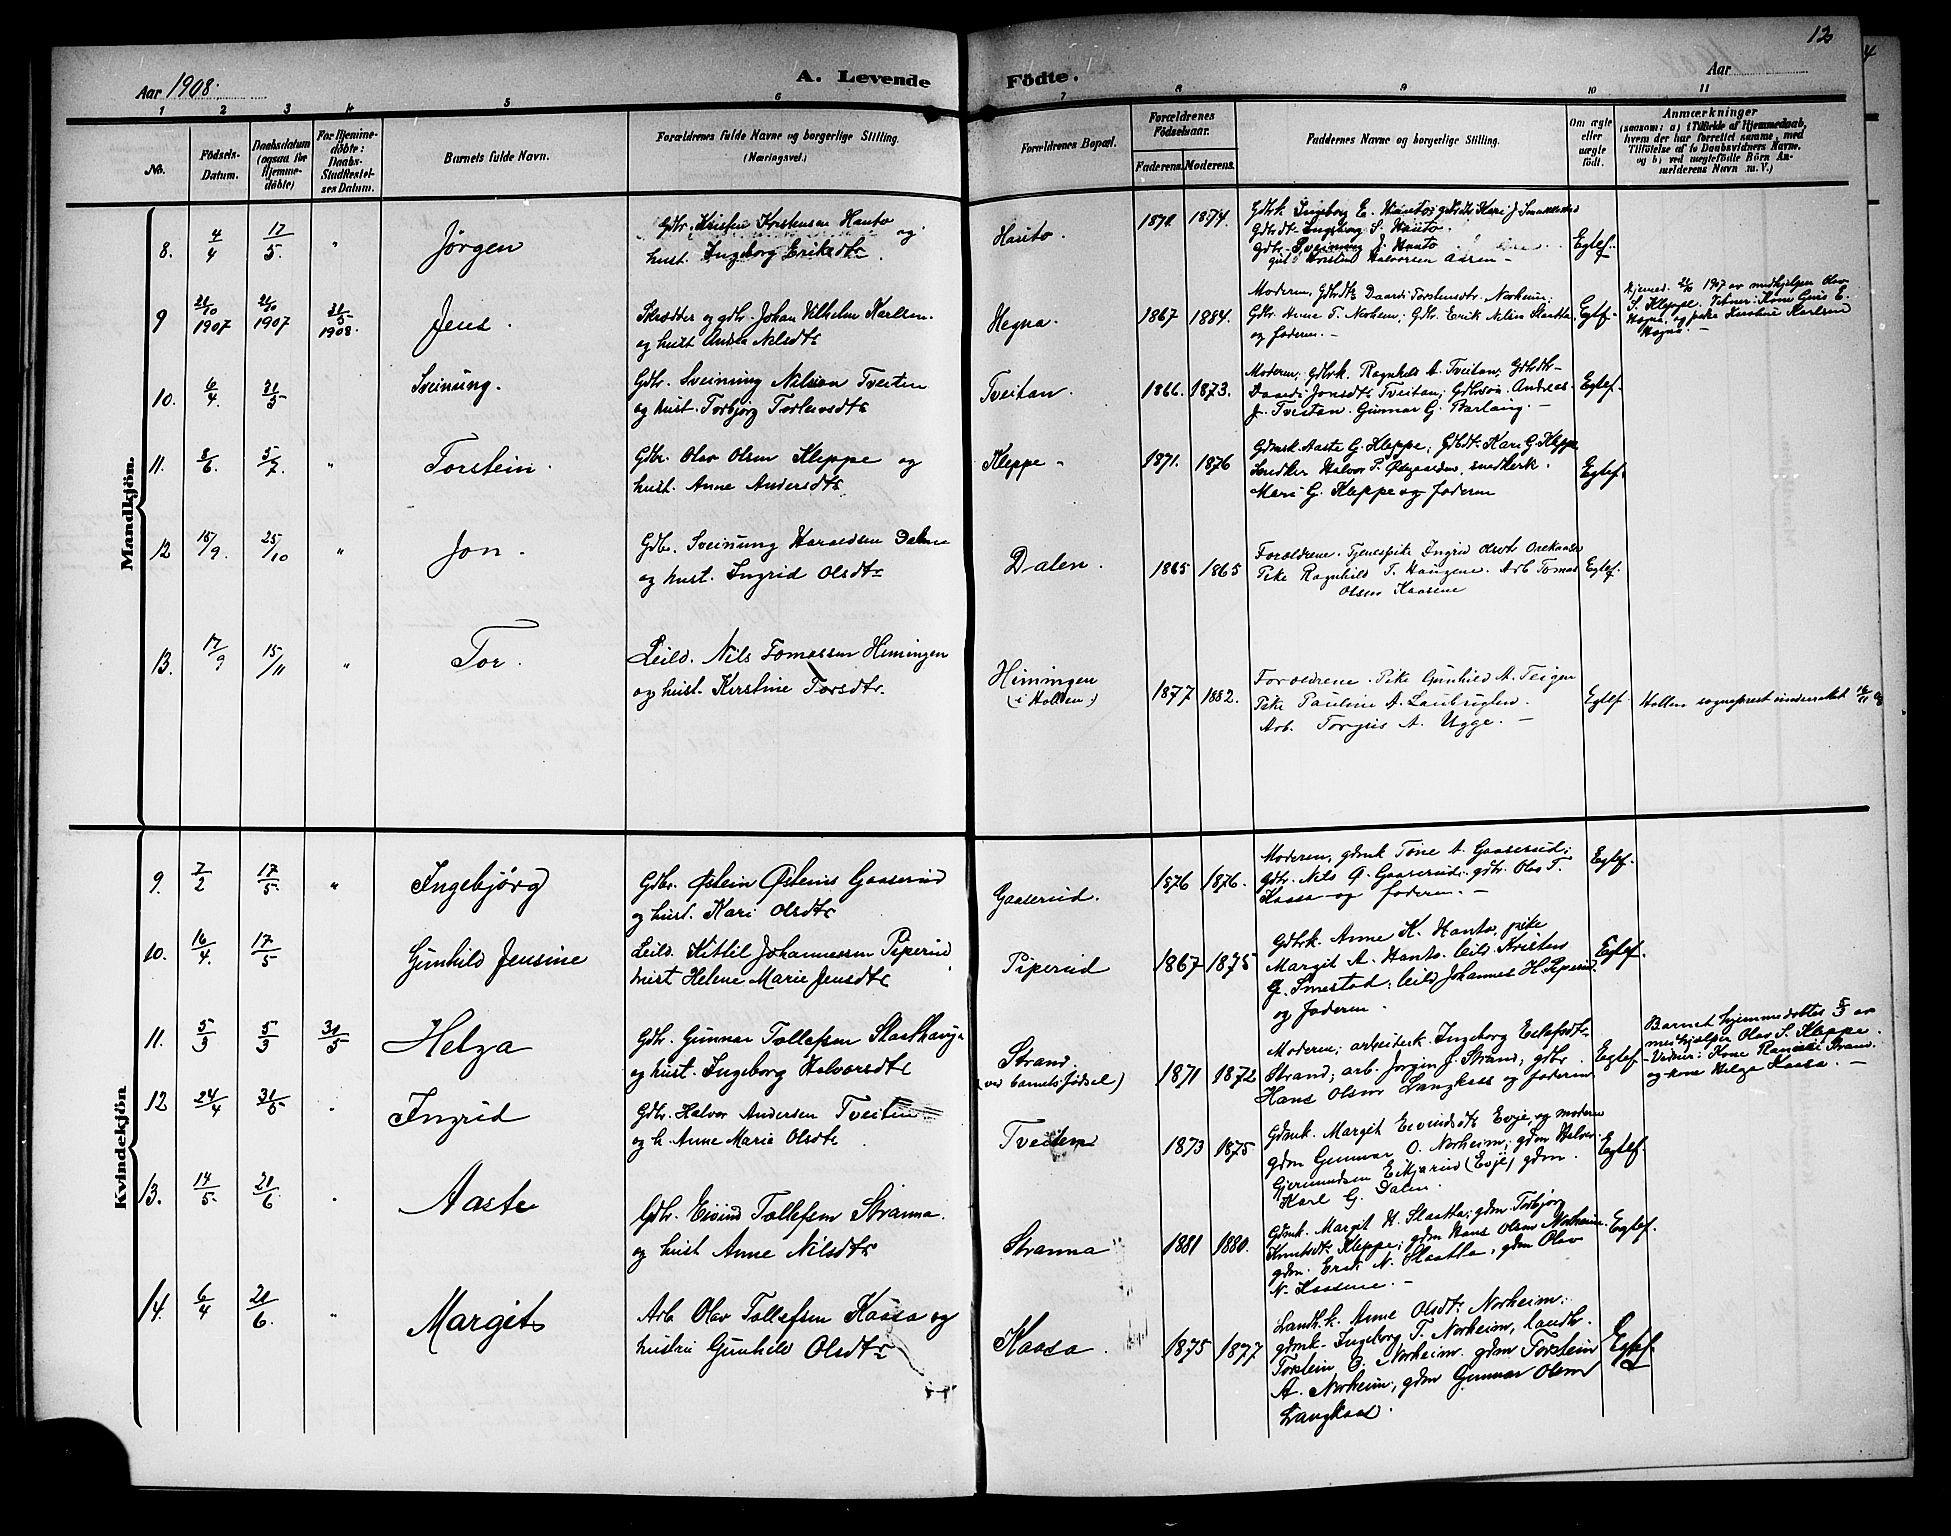 12
Aar 1908.
A. Levende
Födte.
Aar
1 2 3 4 5 6 7 8 9 10 11
No.
Födsels-
Datum.
Daabsdatum
(ogsaa for
Hjemme-
döbte)
For Hjemme-
döbte:
Daabs-
Stadfæstel-
ses Datum.
Barnets fulde Navn.
Forældrenes fulde Navne og borgerlige Stilling.
(Næringsvei.)
Forældrenes Bopæl.
Forældrenes
Födselsaar.
Faderens. Moderens.
Faddernes Navne og borgerlige Stilling.
Om ægte
eller
uægte
födt.
Anmærkninger
(saasom: a) i Tilfælde af Hjemmedaab,
hvem der har forrettet samme, med
Tilföielse af to Daabsvidners Navne.
og b) ved uægtefödte Börn An-
melderens Navn m. V.)
Mandkjön.
8. 4/4 17/5 " Jørgen
Gdbr. Kristen Kristensen Hanto og
hust. Ingeborg Eriksdtr.
Hanto. 1870 1874.
Gdbrk. Ingeborg E. Hanto; gdbrdtr Kari J.
Gdbrdt. Ingeborg S. Hanto.
Gdbr. Sveinung J. Hanto
gut Kristen Halvorsen Aasen -
Egtef.
9 21/10 1907 21/10 1907 31/5 1908. Jens.
Skrædder og gdbr. Johan Vilhelm Karlsen
og hust Andea Nilsdtr
Hegna. 1867 1884.
Moderen, Gdbrdtr Daardi Torstensdtr. Norheim;
Gdbr. Anne T. Norheim; Gdbr. Erik Nilsen Slaatta
og faderen. -
Egtef.
Hjemmed. 21/10 1907 av medhjelper Olav
S. Kleppe. Vitner: Kone E.
Hegna, og pike Kirstine Karlsen
Hegna. -
10. 6/4. 31/5 Sveinung.
Gdbr. Sveinung Nilssen Tveiten
og hust. Torbjørg Torleivsdtr
Tveitan. 1866. 1873.
Moderen; Gdbrk. Ragnhild A Tveitan; Gdbrdtr-
Daardi Jonsdtr Tveitan; Gdbrsøn Andreas
J. Tveitan. Gunnar G. -
Egtef.
11. 8/6. 5/7. " Torstein.
Gdbr. Olav Olsen Kleppe og
hust. Anne Andersdtr
Kleppe. 1871. 1876
Gdmsk Aaste G. Kleppe; Gdbdtr. Kari G. Kleppe
Snedker Halvor P. Østgaarden, snedkerk.
Mari G. Kleppe og faderen
Egtef.
12 15/9. 25/10 " Jon.
Gdbr. Sveinung Haraldsen Dalen
og hust. Ingrid Olsdtr
Dalen. 1865 1865
Forældrene. Tjenestpike Ingrid Olsdt
Pike Ragnhild T. Haugene. Arb Tomas
Olsen Kaasene
Egtef.
13. 17/9 15/11 " Tor.
Leild. Nils Tomassen Himingen
og hust. Kirstine Torsdtr.
Himingen
(i Hollen) 1877 1882.
Forældrene. Pike Gunhild A. Teigen
Pike Pauline A.
Arb. Torgius A. Ugge. -
Egtef.
Hollens sogneprest underrettet
Kvindekjön
9. 7/2 17/5. " Ingebjörg
Gdbr. Østein Østensen Gaaserud
og hust. Kari Olsdtr
Gaaserud. 1876 1876.
Moderen, gdmk Tone A. Gaaserud;
gdbr. Nils Ø. Gaaserud; gdbr. Olav T.
Kaasa og faderen. -
Egtef.
10. 16/4. 17/5 Gunhild Jensine
Leild. Kittil Johannessen Piperud
hust Helene Marie Jensdtr
Piperud 1867 1875
Gdbrk. Anne K. Hanto, pike
Margit A. Hanto. leild. Kristen
G. Smestad; leild Johannes H. Piperud
og faderen.
Egtef.
11. 5/3 5/3 31/5 Helga
Gdbr. Gunnar Tollefsen Slaathaug
og hust. Ingeborg Halvorsdtr
Strand.
(ved barnets fødsel) 1871 1872
Moderen; arbeiderk. Ingeborg
Strand; arb. Jørgen J. Strand; gdbr.
Hans Olsen Langkaas og faderen
Egtef
Barnet hjemmedøbtes 5/3 av
medhjælper Olav S. Kleppe.
- Vidner: Kone Strand.
og kone Helga Kaasa. -
12 24/4 31/5 Ingrid
Gdbr. Halvor Andersen Tveiten
og h. Anne Marie Olsdtr
Tveiten 1873 1875
Gdmk. Margit Eivindsdtr Evje, og moderen
gdm Gunnar O. Norheim; gdm Halvor
Gjermundsen Eikjarud (Evje) gdm.
Karl G. Dalen.
Egtef.
13. 14/5. 21/6 Aaste
Gdbr. Eivind Tollefsen Stranna.
og hust Anne Nilsdtr
Stranna 1881 1880.
Gdmk. Margit H. Slaatta; gdm Torbjør
Knutsdtr Kleppe; gdm Hans Olsen Norheim.
gdm. Erik N. Slaatta, gdm Olav
N. Kaasene. -
Egtef.
14. 6/4 21/6. " Margit
Arb Olav Tollefsen Kaasa og
hustru Gunhild Olsdtr
Kaasa. 1875 1877
Landh.k. Anne Olsdtr Norheim;
gdmk. Ingeborg T. Norheim, landhr.
Torstein O. Norheim. gdm Torstein
A. Norheim, gdm Gunnar Olsen
Langkaas.
Egtef.